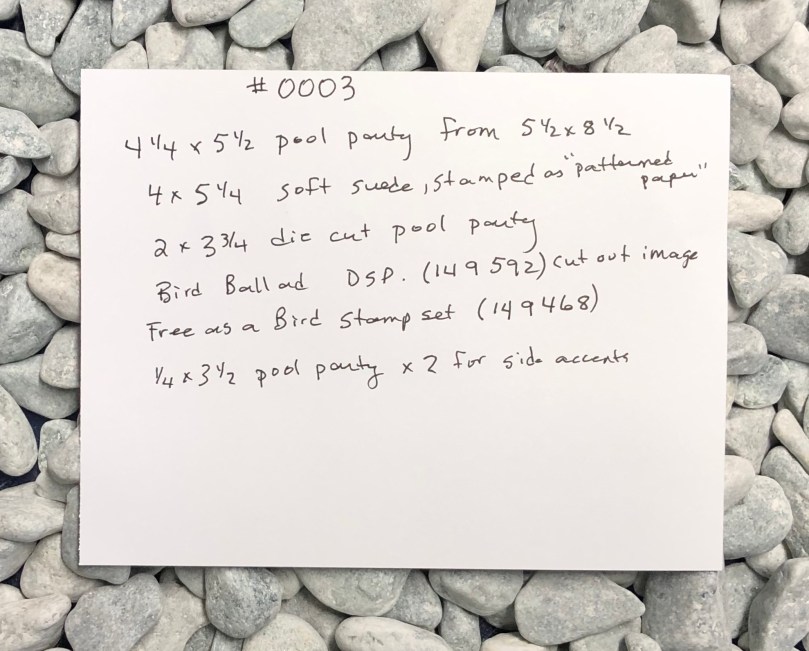 # 0003
4 1/4 x 5 1/2 pool party from 5 1/2 x 8 1/2
4 x 5 1/4 soft suede, stamped as "patterned
paper"
2 x 3 3/4 die cut pool party
Bird Ballad DSP. (149 592) cut out image
Free as a Bird stamp set (149468)
1/4 x 3 1/2 pool party x 2 for side accents